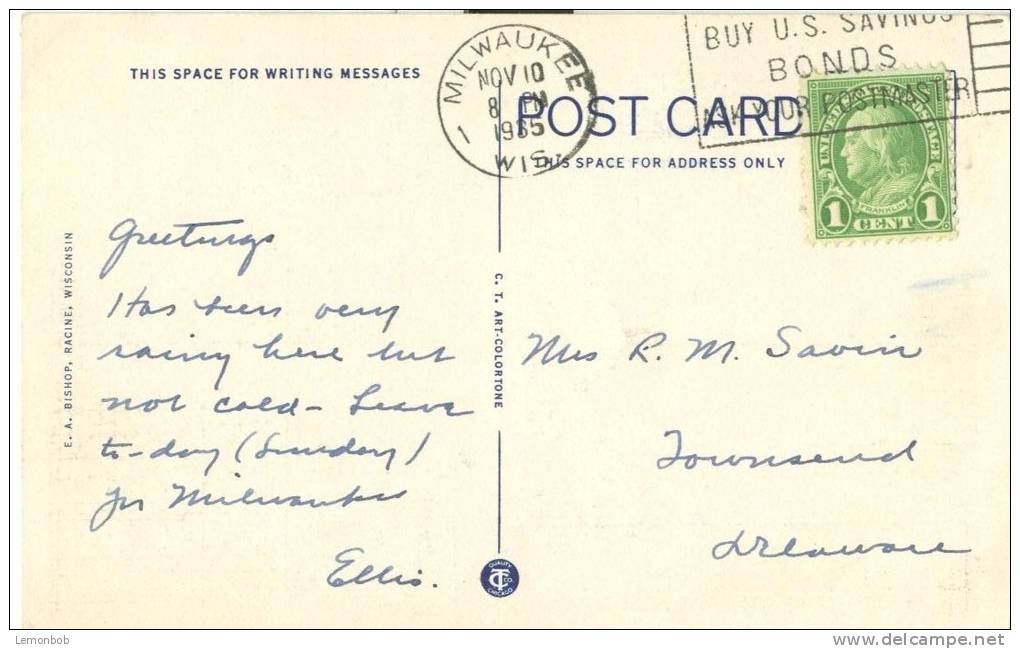 THIS SPACE FOR WRITING MESSAGES
MILWAUKEE
1
NOV 10
8 PM
1935
WIS.
BUY U.S. SAVINGS
BONDS
ASK YOUR POSTMASTER
POST CARD
THIS SPACE FOR ADDRESS ONLY
UNITED STATES POSTAGE
FRANKLIN
1 CENT 1
E. A. BISHOP, RACINE, WISCONSIN
Greetings
Has been very
rainy here but
not cold – Leave
to-day (Sunday)
for Milwaukee
Ellis.
C. T. ART-COLORTONE
QUALITY
CT CO
CHICAGO
Mrs R. M. Savin
Townsend
Delaware
Lemonbob
www.delcampe.net